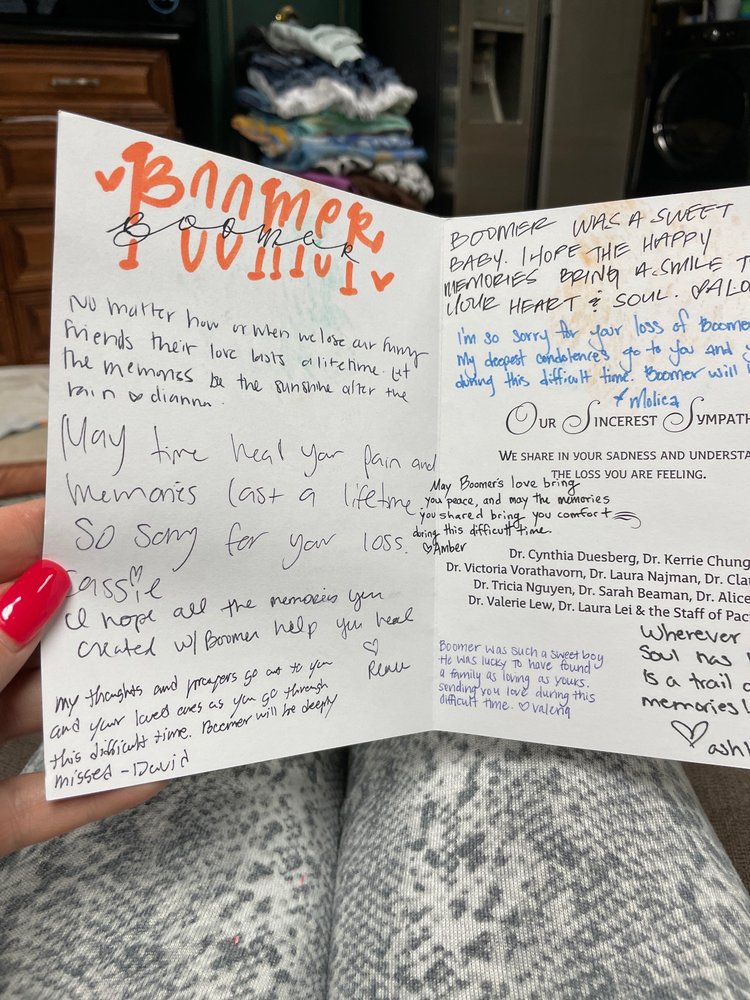 Boomer
Boomer
No matter how or when we lose our furry
friends their love lasts a lifetime. Let
the memories be the sunshine after the
rain ♡ dianna
May time heal your pain and
memories last a lifetime.
So sorry for your loss.
Cassie
I hope all the memories you
created w/Boomer help you heal
♡
My thoughts and prayers go out to you
and your loved ones as you go through
this difficult time. Boomer will be deeply
missed -David
BOOMER WAS A SWEET
BABY. I HOPE THE HAPPY
MEMORIES BRING A SMILE T
YOUR HEART & SOUL.
I'm so sorry for your loss of Boomer
My deepest condolences go to you and
during this difficult time. Boomer will
OUR SINCEREST SYMPATH
WE SHARE IN YOUR SADNESS AND UNDERSTA
THE LOSS YOU ARE FEELING.
May Boomer's love bring
you peace, and may the memories
you shared bring you comfort
during this difficult time.
♡Amber
Dr. Cynthia Duesberg, Dr. Kerrie Chung
Dr. Victoria Vorathavorn, Dr. Laura Najman, Dr. Cla
Dr. Tricia Nguyen, Dr. Sarah Beaman, Dr. Alice
Dr. Valerie Lew, Dr. Laura Lei & the Staff of Pac
Boomer was such a sweet boy
He was lucky to have found
a family as loving as yours.
sending you love during this
difficult time. ♡ Valeria
Wherever
Soul has
Is a trail o
memories
♡ ash